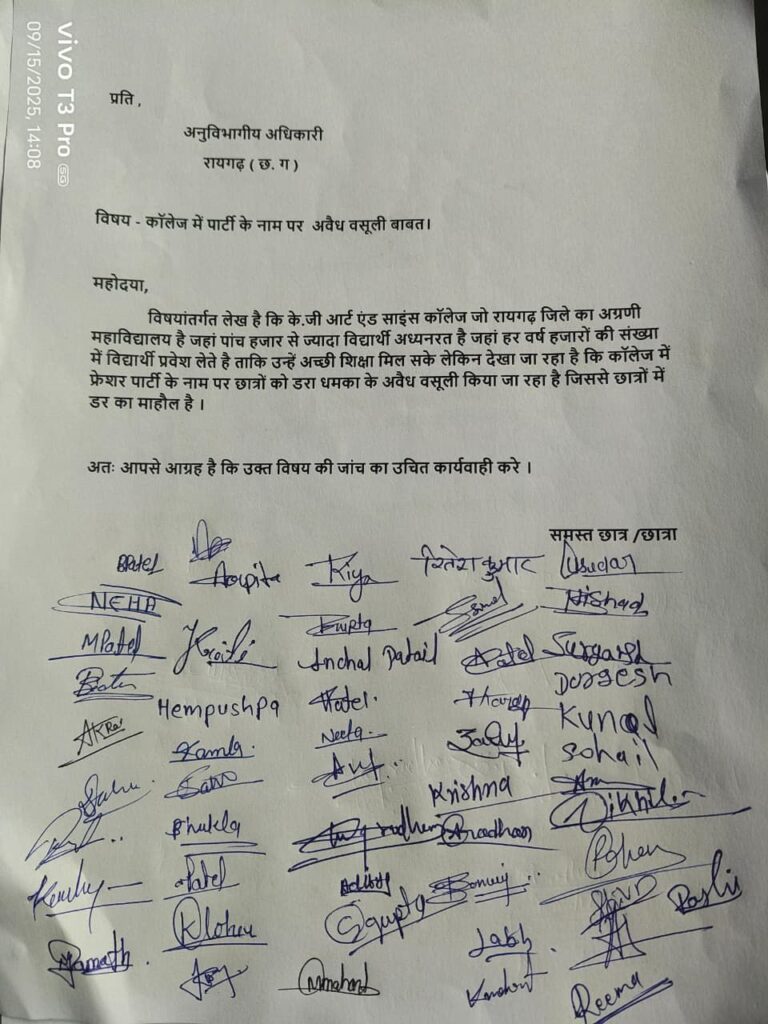 vivo T3 Pro 5G
09/15/2025, 14:08
प्रति ,
अनुविभागीय अधिकारी
रायगढ़ ( छ. ग )
विषय - कॉलेज में पार्टी के नाम पर अवैध वसूली बाबत।
महोदया,
विषयांतर्गत लेख है कि के.जी आर्ट एंड साइंस कॉलेज जो रायगढ़ जिले का अग्रणी
महाविद्यालय है जहां पांच हजार से ज्यादा विद्यार्थी अध्यनरत है जहां हर वर्ष हजारों की संख्या
में विद्यार्थी प्रवेश लेते है ताकि उन्हें अच्छी शिक्षा मिल सके लेकिन देखा जा रहा है कि कॉलेज में
फ्रेशर पार्टी के नाम पर छात्रों को डरा धमका के अवैध वसूली किया जा रहा है जिससे छात्रों में
डर का माहौल है ।
अतः आपसे आग्रह है कि उक्त विषय की जांच का उचित कार्यवाही करे ।
समस्त छात्र /छात्रा
BPatel Arpita Riya रितेश कुमार
NEHA Gupta Nishad
MPatel Anchal Patail Patel
Durgesh
Hempushpa Patel
AKRai Neeta Kunal
Kamla Sohail
Sahu Krishna
Nikhil
Shukla Pradhan
Patel Aditya
Sgupta Rashi
Reema